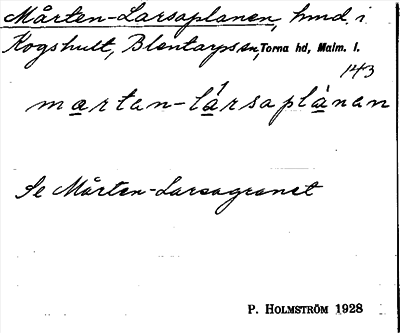 Mårten-Larsaplanen, hmd. i
Kogshult, Blentarps sn, Torna hd, Malm. l.
143
mårtan-lársaplànan
Se Mårten-Larsagranet
P. HOLMSTRÖM 1928